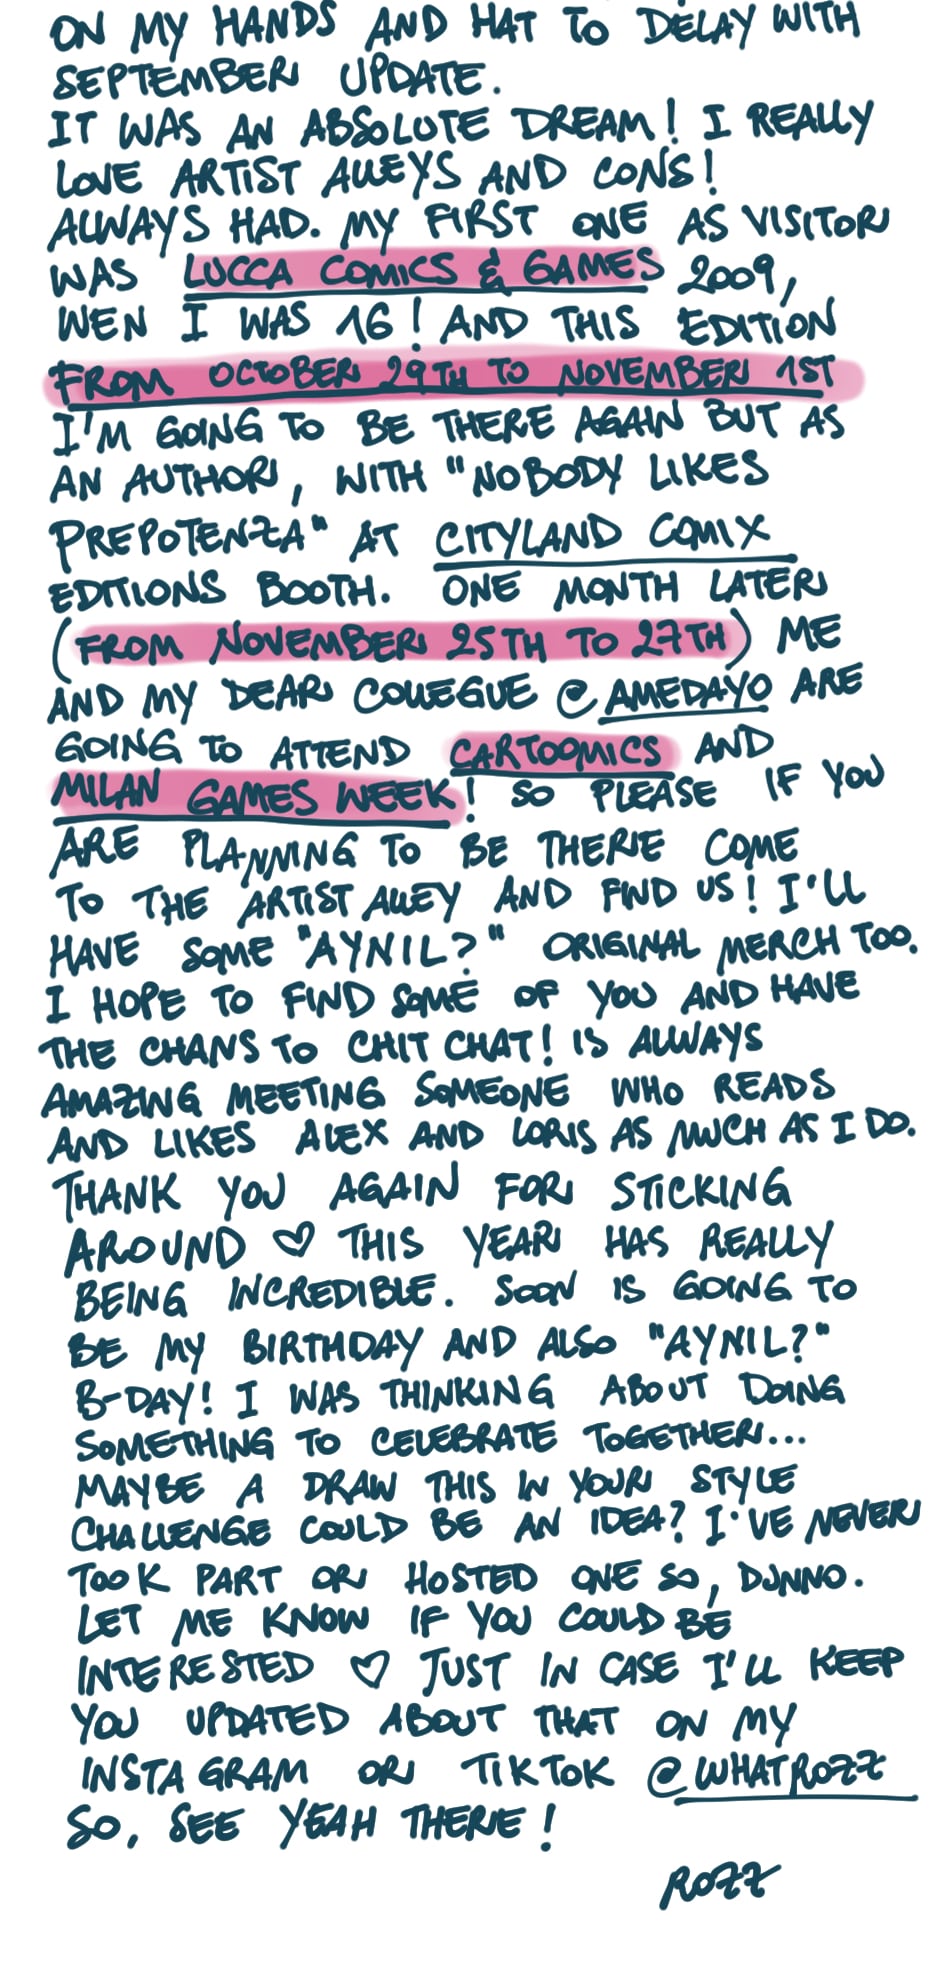 ON MY HANDS AND HAT TO DELAY WITH
SEPTEMBER UPDATE.
IT WAS AN ABSOLUTE DREAM! I REALLY
LOVE ARTIST ALLEYS AND CONS!
ALWAYS HAD. MY FIRST ONE AS VISITOR
WAS LUCCA COMICS & GAMES 2009,
WEN I WAS 16! AND THIS EDITION
FROM OCTOBER 29TH TO NOVEMBER 1ST
I'M GOING TO BE THERE AGAIN BUT AS
AN AUTHOR, WITH "NOBODY LIKES
PREPOTENZA" AT CITYLAND COMIX
EDITIONS BOOTH. ONE MONTH LATER
(FROM NOVEMBER 25TH TO 27TH) ME
AND MY DEAR COLLEGUE @AMEDAYO ARE
GOING TO ATTEND CARTOOMICS AND
MILAN GAMES WEEK! SO PLEASE IF YOU
ARE PLANNING TO BE THERE COME
TO THE ARTIST ALLEY AND FIND US! I'LL
HAVE SOME "AYNIL?" ORIGINAL MERCH TOO.
I HOPE TO FIND SOME OF YOU AND HAVE
THE CHANS TO CHIT CHAT! IS ALWAYS
AMAZING MEETING SOMEONE WHO READS
AND LIKES ALEX AND LORIS AS MUCH AS I DO.
THANK YOU AGAIN FOR STICKING
AROUND ♡ THIS YEAR HAS REALLY
BEING INCREDIBLE. SOON IS GOING TO
BE MY BIRTHDAY AND ALSO "AYNIL?"
B-DAY! I WAS THINKING ABOUT DOING
SOMETHING TO CELEBRATE TOGETHER...
MAYBE A DRAW THIS IN YOUR STYLE
CHALLENGE COULD BE AN IDEA? I'VE NEVER
TOOK PART OR HOSTED ONE SO, DUNNO.
LET ME KNOW IF YOU COULD BE
INTERESTED ♡ JUST IN CASE I'LL KEEP
YOU UPDATED ABOUT THAT ON MY
INSTAGRAM OR TIKTOK @WHATROZZ
SO, SEE YEAH THERE!
ROZZ